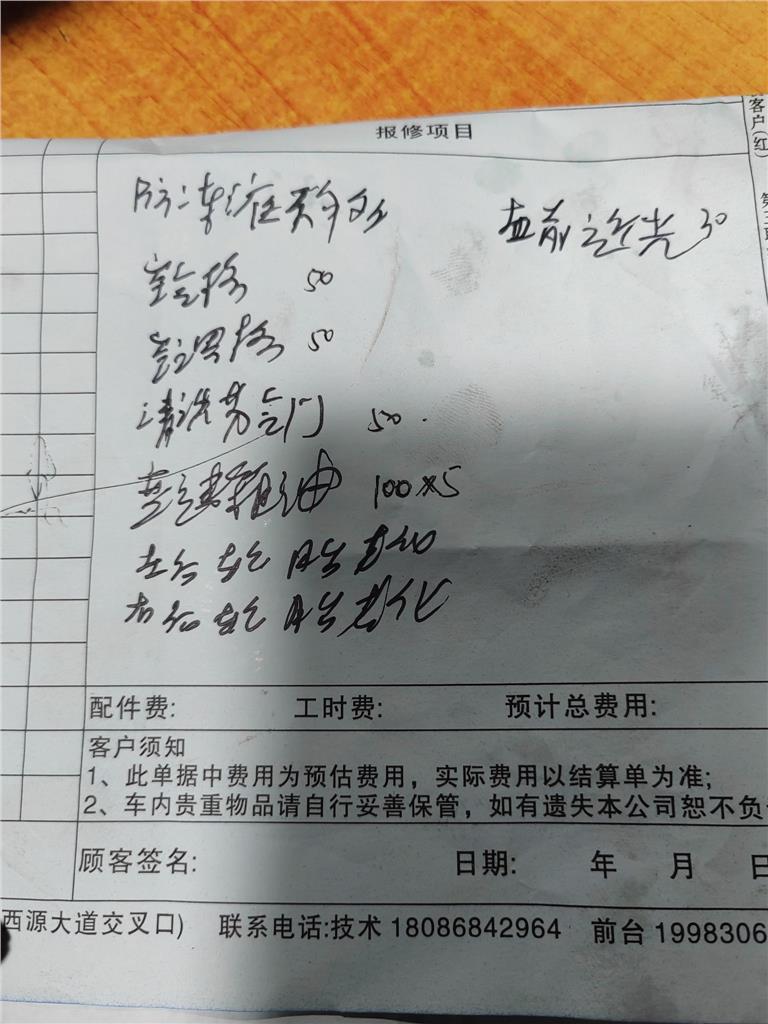 报修项目
空气格 50
空调格 50
清洗节气门 50
变速箱油 100×5
左右轮胎老化
右后轮胎老化
左前近光 30
配件费: 工时费: 预计总费用:
客户须知
1、此单据中费用为预估费用，实际费用以结算单为准;
2、车内贵重物品请自行妥善保管，如有遗失本公司恕不负
顾客签名: 日期: 年 月 日
西源大道交叉口) 联系电话:技术 18086842964 前台 1998306
客户(红)